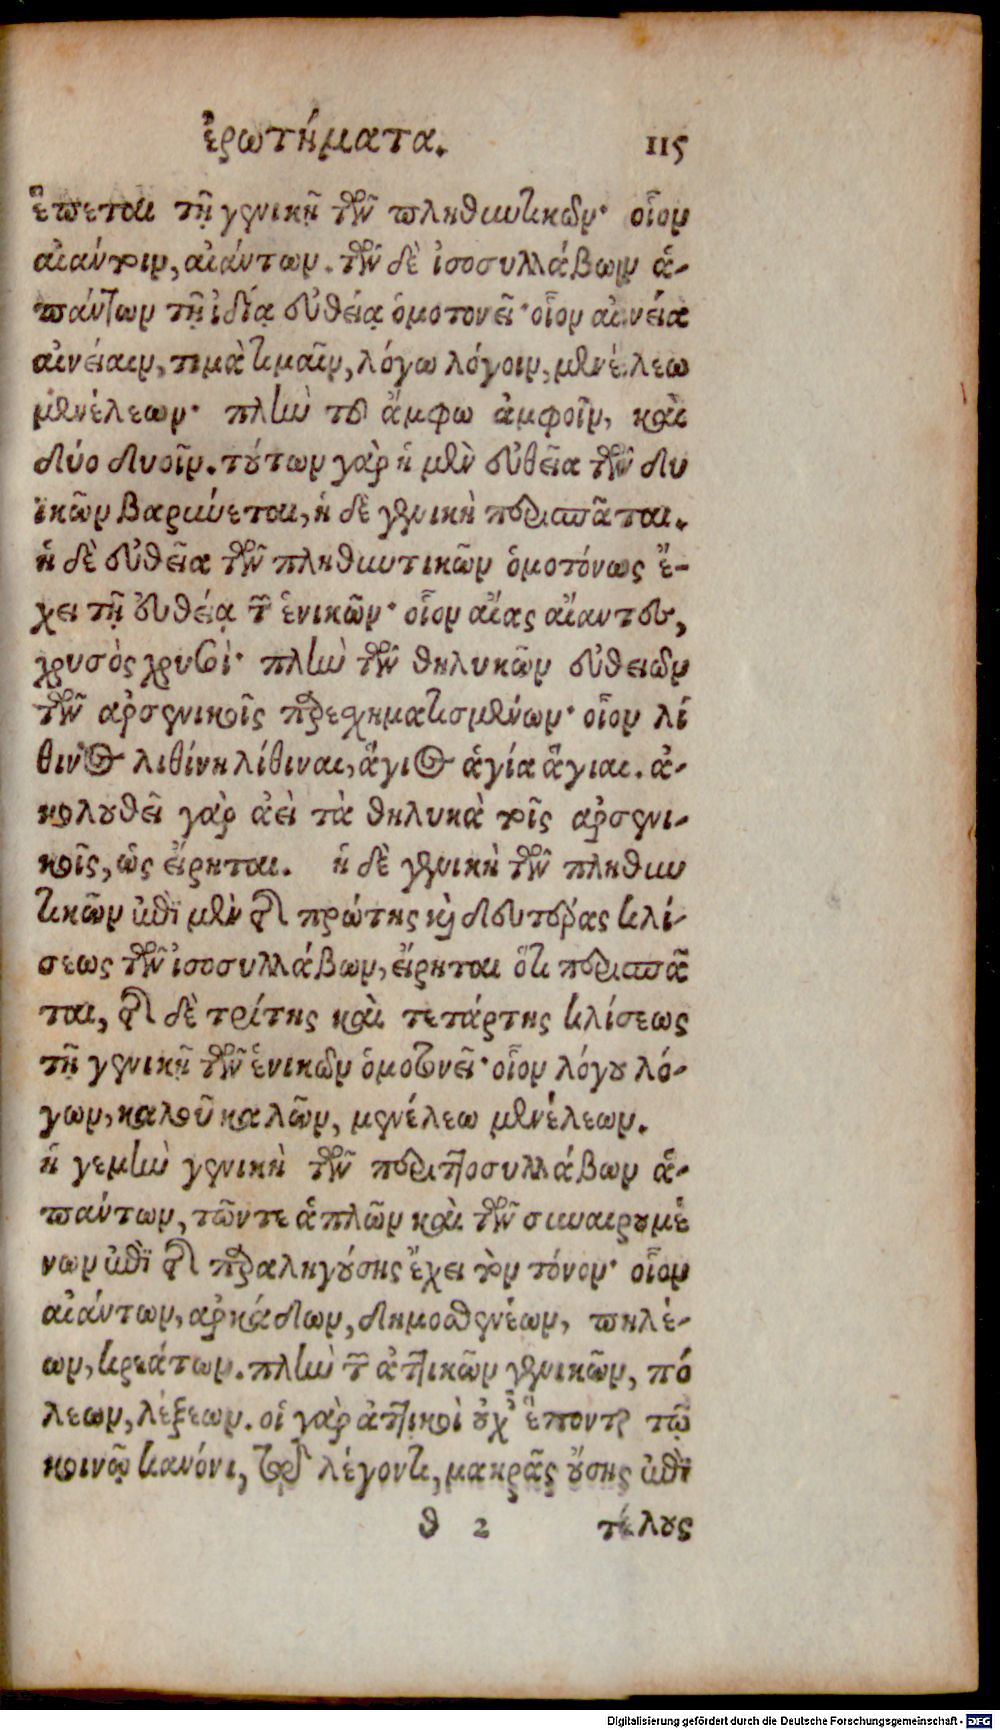 ἐρωτήματα. 115
ἕπεται τῇ γενικῇ τῶν πληθυντικῶν· οἷον
αἰάντοιν, αἰάντων. τῶν δὲ ἰσοσυλλάβων ἁ-
πάντων τῇ ἰδίᾳ εὐθείᾳ ὁμοτονεῖ· οἷον αἰνεία
αἰνείαιν, τιμὰ τιμαῖν, λόγω λόγοιν, μενέλεω
μενέλεων· πλὴν τοῦ ἄμφω ἀμφοῖν, καὶ
δύο δυοῖν. τούτων γὰρ ἡ μὲν εὐθεῖα τῶν δυ
ϊκῶν βαρύνεται, ἡ δὲ γενικὴ περισπᾶται.
ἡ δὲ εὐθεῖα τῶν πληθυντικῶν ὁμοτόνως ἔ-
χει τῇ εὐθείᾳ τῶν ἑνικῶν· οἷον αἴας αἴαντες,
χρυσὸς χρυσοὶ· πλὴν τῶν θηλυκῶν εὐθειῶν
τῶν ἀρσενικοῖς παρεσχηματισμένων· οἷον λί
θινος λιθίνη λίθιναι, ἅγιος ἁγία ἅγιαι. ἀ-
κολουθεῖ γὰρ ἀεὶ τὰ θηλυκὰ τοῖς ἀρσενι-
κοῖς, ὡς εἴρηται. ἡ δὲ γενικὴ τῶν πληθυν
τικῶν ἐπὶ μὲν τῆς πρώτης καὶ δευτέρας κλί-
σεως τῶν ἰσοσυλλάβων, εἴρηται ὅτι περισπᾶ
ται, τῆς δὲ τρίτης καὶ τετάρτης κλίσεως
τῇ γενικῇ τῶν ἑνικῶν ὁμοτονεῖ· οἷον λόγου λό-
γων, καλοῦ καλῶν, μενέλεω μενέλεων.
ἡ γεμὴν γενικὴ τῶν περιττοσυλλάβων ἁ-
πάντων, τῶν τε ἁπλῶν καὶ τῶν συναιρουμέ
νων ἐπὶ τῆς παραληγούσης ἔχει τὸν τόνον· οἷον
αἰάντων, ἀρκάδων, δημοσθενέων, πηλέ-
ων, κρεάτων. πλὴν τῶν ἀττικῶν γενικῶν, πό
λεων, λέξεων. οἱ γὰρ ἀττικοὶ οὐχ' ἕπονται τῷ
κοινῷ κανόνι, τῷ λέγοντι, μακρᾶς οὔσης ἐπὶ
θ 2 τέλους
Digitalisierung gefördert durch die Deutsche Forschungsgemeinschaft - DFG